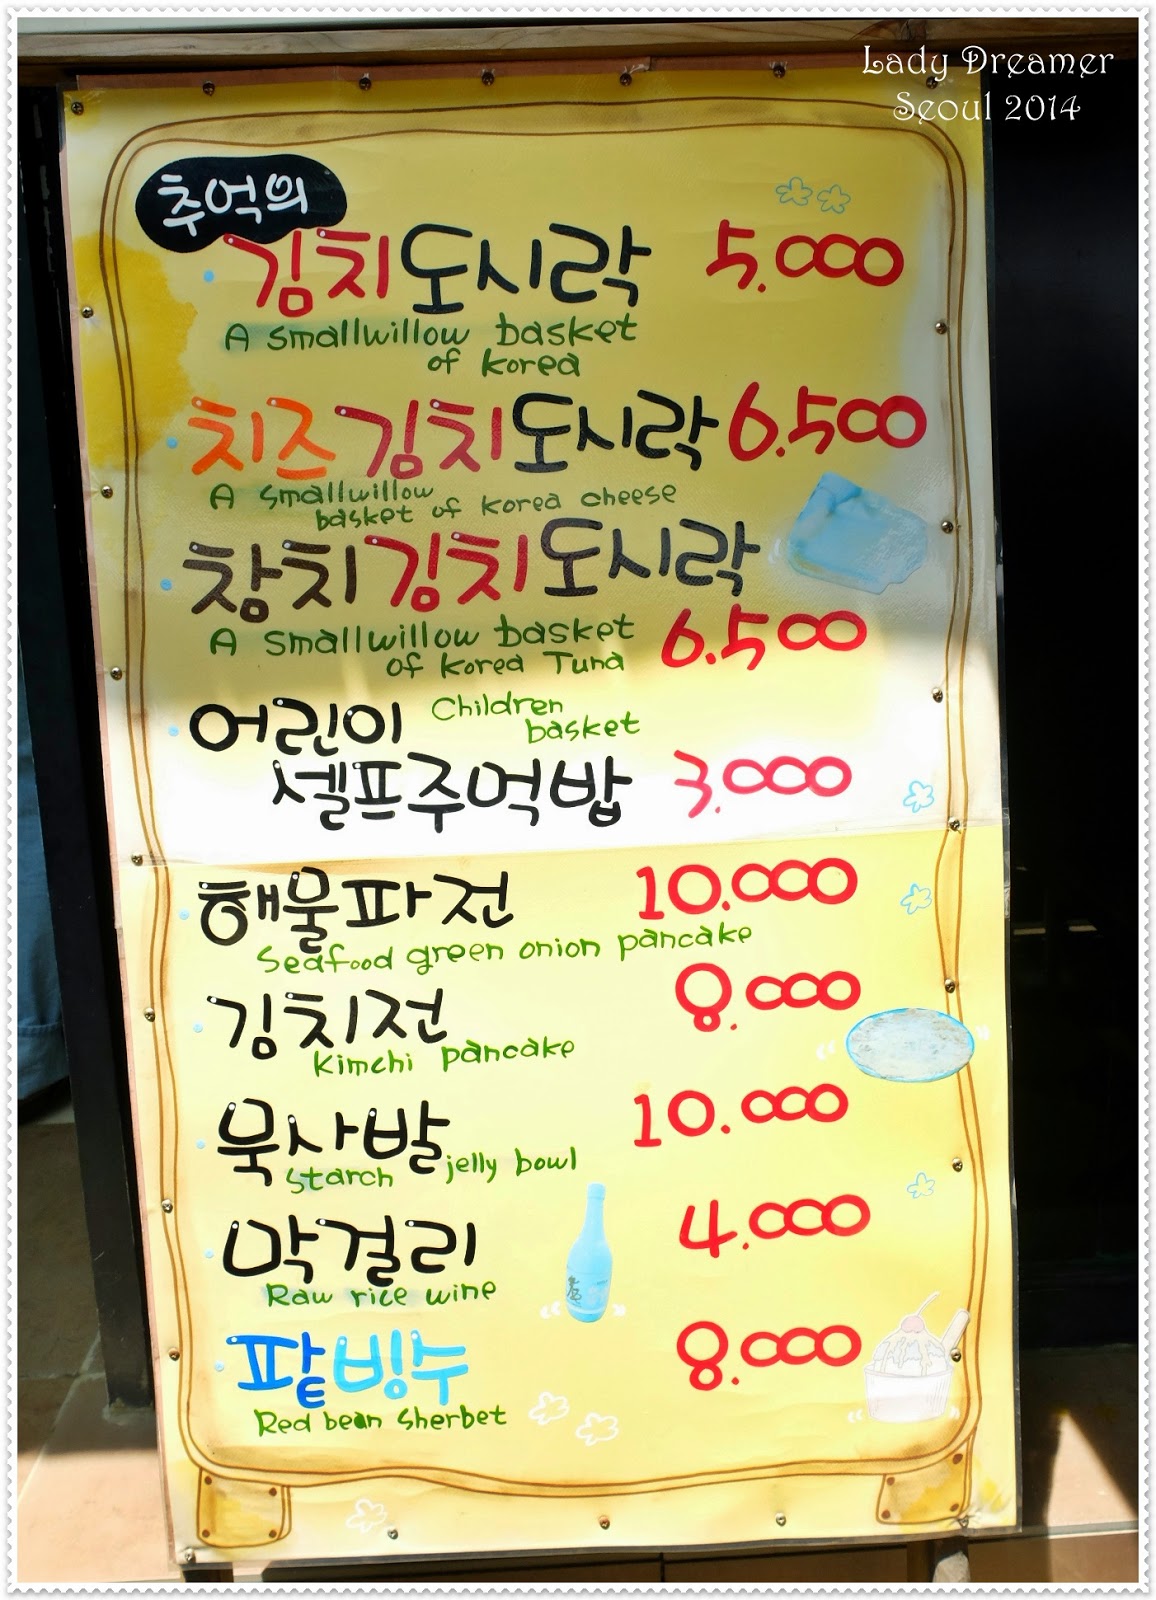 Lady Dreamer
Seoul 2014
추억의
김치도시락 5.000
A smallwillow basket
of korea
치즈김치도시락 6.500
A smallwillow
basket of korea cheese
참치김치도시락
A smallwillow basket 6.500
of korea Tuna
어린이 Children
basket
셀프주먹밥 3.000
해물파전 10.000
Seafood green onion pancake
김치전 8.000
kimchi pancake
묵사발 10.000
starch jelly bowl
막걸리 4.000
Raw rice wine
팥빙수 8.000
Red bean sherbet